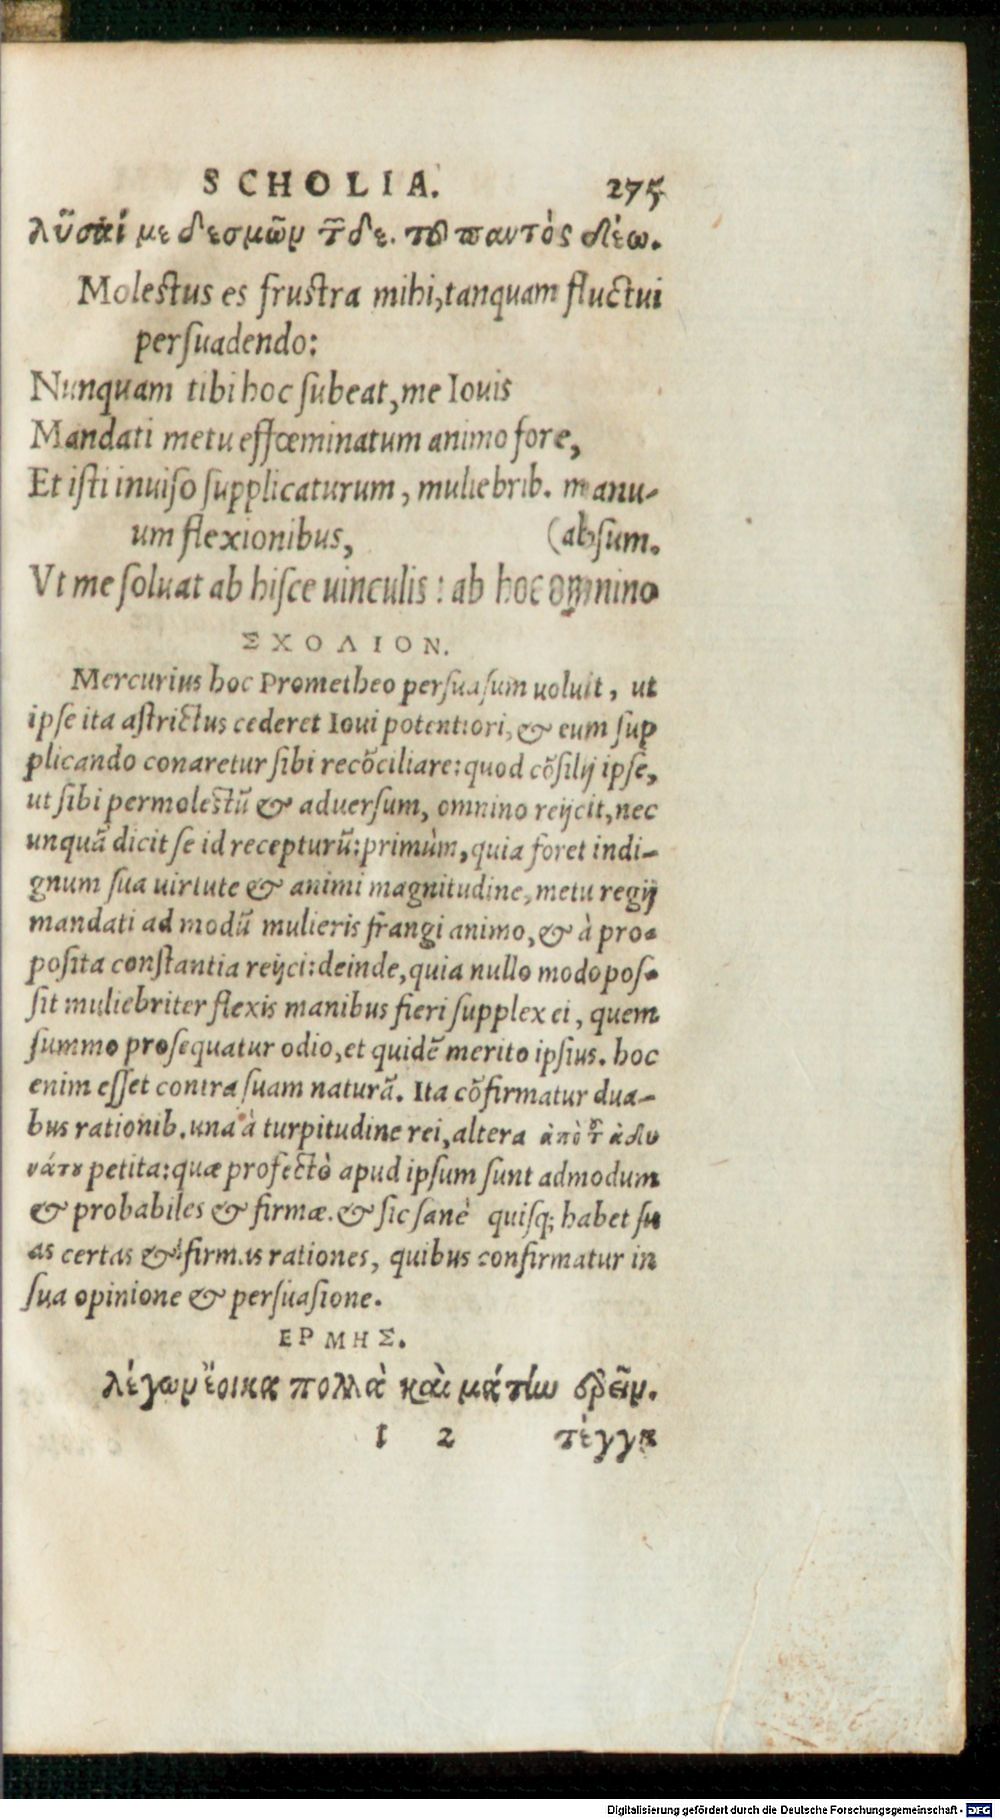 SCHOLIA. 275
λῦσαί με δεσμῶν τῶνδε. τοῦ παντὸς δέω.
Molestus es frustra mihi, tanquam fluctui
persuadendo:
Nunquam tibi hoc subeat, me Iouis
Mandati metu effœminatum animo fore,
Et isti inuiso supplicaturum, muliebrib. manu-
um flexionibus, (absum.
Vt me soluat ab hisce uinculis: ab hoc omnino
ΣΧΟΛΙΟΝ.
Mercurius hoc Prometheo persuasum uoluit, ut
ipse ita astrictus cederet Ioui potentiori, & eum sup
plicando conaretur sibi recōciliare: quod cōsilij ipse,
ut sibi permolestū & aduersum, omnino reijcit, nec
unquā dicit se id recepturū: primùm, quia foret indi-
gnum sua uirtute & animi magnitudine, metu regij
mandati ad modū mulieris frangi animo, & à pro-
posita constantia reijci: deinde, quia nullo modo pos-
sit muliebriter flexis manibus fieri supplex ei, quem
summo prosequatur odio, et quidē merito ipsius. hoc
enim esset contra suam naturā. Ita cōfirmatur dua-
bus rationib. una à turpitudine rei, altera ἀπὸ τοῦ ἀδυ
νάτου petita: quæ profectò apud ipsum sunt admodum
& probabiles & firmæ. & sic sanè quisq; habet su
as certas & firmas rationes, quibus confirmatur in
sua opinione & persuasione.
ΕΡΜΗΣ.
λέγων ἔοικα πολλὰ καὶ μάτην ἐρεῖν.
1 2 τέγγῃ
Digitalisierung gefördert durch die Deutsche Forschungsgemeinschaft - DFG